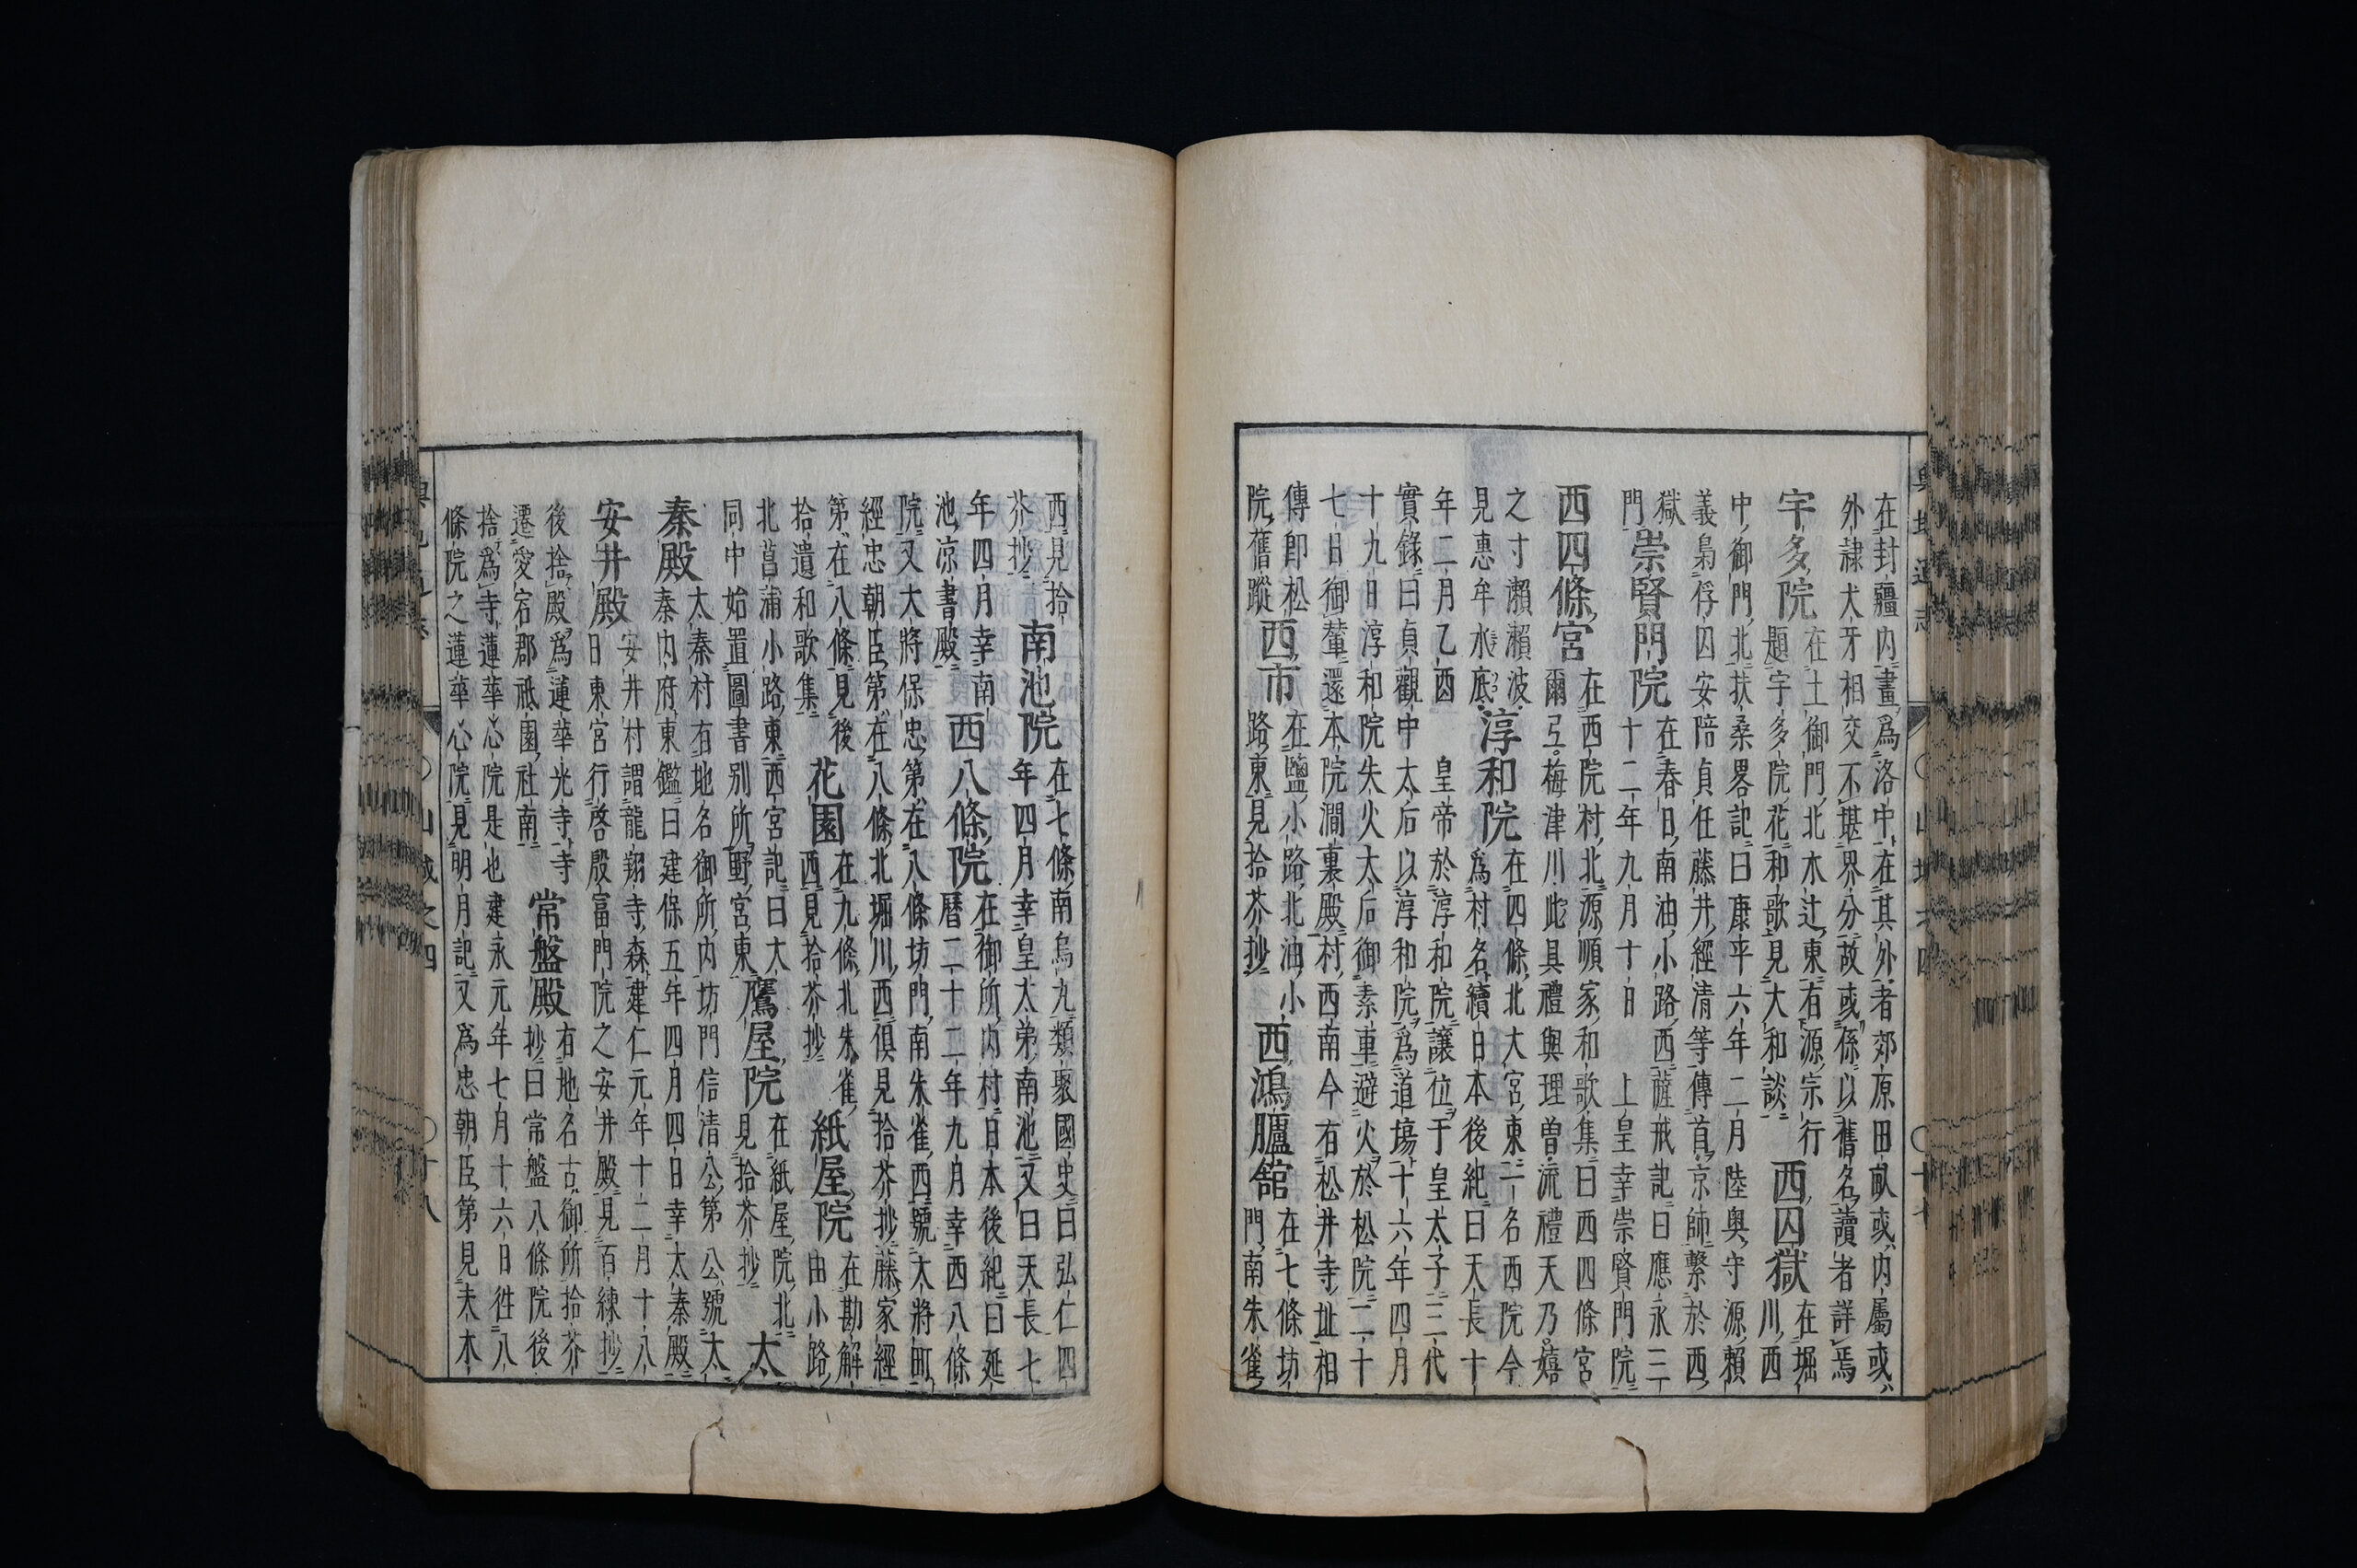 在封疆内畫爲洛中在其外者郊原田畝或内屬或
外隷犬牙相交不堪界分故或係以舊名讀者詳焉
宇多院
在土御門北木辻東有源宗行
題宇多院花和歌見大和談
西囚獄
在堀
川西
中御門北扶桑畧記曰康平六年二月陸奥守源頼
義梟俘囚安陪貞任藤井經清等傳首京師繋於西
獄
門
崇賢門院
在春日南油小路西薩戒記曰應永三
十二年九月十日 上皇幸崇賢門院
西四條宮
在西院村北源順家和歌集曰西四條宮
爾互梅津川此具禮與理曽流禮天乃嬉
之寸瀨瀨波
見惠牟水底
淳和院
在四條北大宮東二名西院今
爲村名續日本後紀曰天長十
年二月乙酉 皇帝於淳和院讓位于皇太子三代
實録曰貞觀中 太后以淳和院爲道場十六年四月
十九日淳和院失火太后御素車避火於松院二十
七日御輦還本院澗裏殿村西南今有松井寺址相
傳卽松
院舊蹤
西市
在鹽小路北油小
路東見拾芥抄
西鴻臚舘
在七條坊
門南朱雀
西見拾
芥抄
南池院
在七條南烏丸類聚國史曰弘仁四
年四月幸皇太弟南池又曰天長七
年四月幸南
池凉書殿
西八條院
在御所内村日本後紀曰延
暦二十二年九月幸西八條
院又大將保忠第在八條坊門南朱雀西號太將町
經忠朝臣第在八條北堀川西倶見拾芥抄藤家經
第在八條見後
拾遺和歌集
花園
在九條北朱雀
西見拾芥抄
紙屋院
在勘解
由小路
北菖蒲小路東西宮記曰大
同中始置圖書別所野宮東
鷹屋院
在紙屋院北
見拾芥抄
太
秦殿
太秦村有地名御所内坊門信清公第公號太
秦内府東鑑曰建保五年四月四日幸太秦殿
安井殿
安井村謂龍翔寺森建仁元年十二月十八
日東宮行啓殷富門院之安井殿見百練抄
後捨殿爲蓮華光寺寺
遷愛宕郡祗園社南
常盤殿
有地名古御所拾芥
抄曰常盤八條院後
捨爲寺蓮華心院是也建永元年七月十六日徃八
條院之蓮華心院見明月記又爲忠朝臣第見夫木